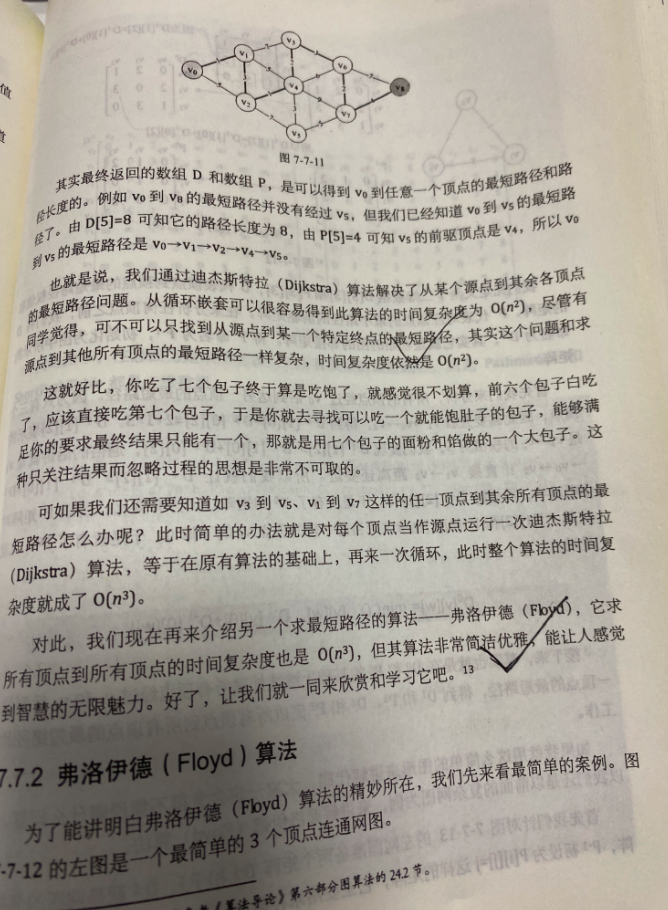 值
V₀
V₁
V₂
V₃
V₄
V₅
V₆
V₇
V₈
图 7-7-11
其实最终返回的数组 D 和数组 P，是可以得到 v₀ 到任意一个顶点的最短路径和路
径长度的。例如 v₀ 到 v₈ 的最短路径并没有经过 v₅，但我们已经知道 v₀ 到 v₅ 的最短路
径了。由 D[5]=8 可知它的路径长度为 8，由 P[5]=4 可知 v₅ 的前驱顶点是 v₄，所以 v₀
到 v₅ 的最短路径是 v₀→v₁→v₂→v₄→v₅。
也就是说，我们通过迪杰斯特拉（Dijkstra）算法解决了从某个源点到其余各顶点
的最短路径问题。从循环嵌套可以很容易得到此算法的时间复杂度为 O(n²)，尽管有
同学觉得，可不可以只找到从源点到某一个特定终点的最短路径，其实这个问题和求
源点到其他所有顶点的最短路径一样复杂，时间复杂度依然是 O(n²)。
这就好比，你吃了七个包子终于算是吃饱了，就感觉很不划算，前六个包子白吃
了，应该直接吃第七个包子，于是你就去寻找可以吃一个就能饱肚子的包子，能够满
足你的要求最终结果只能有一个，那就是用七个包子的面粉和馅做的一个大包子。这
种只关注结果而忽略过程的思想是非常不可取的。
可如果我们还需要知道如 v₃ 到 v₅、v₁ 到 v₇ 这样的任一顶点到其余所有顶点的最
短路径怎么办呢？此时简单的办法就是对每个顶点当作源点运行一次迪杰斯特拉
（Dijkstra）算法，等于在原有算法的基础上，再来一次循环，此时整个算法的时间复
杂度就成了 O(n³)。
对此，我们现在再来介绍另一个求最短路径的算法——弗洛伊德（Floyd），它求
所有顶点到所有顶点的时间复杂度也是 O(n³)，但其算法非常简洁优雅，能让人感觉
到智慧的无限魅力。好了，让我们就一同来欣赏和学习它吧。¹³
7.7.2 弗洛伊德（Floyd）算法
为了能讲明白弗洛伊德（Floyd）算法的精妙所在，我们先来看最简单的案例。图
-7-12 的左图是一个最简单的 3 个顶点连通网图。
《算法导论》第六部分图算法的 24.2 节。